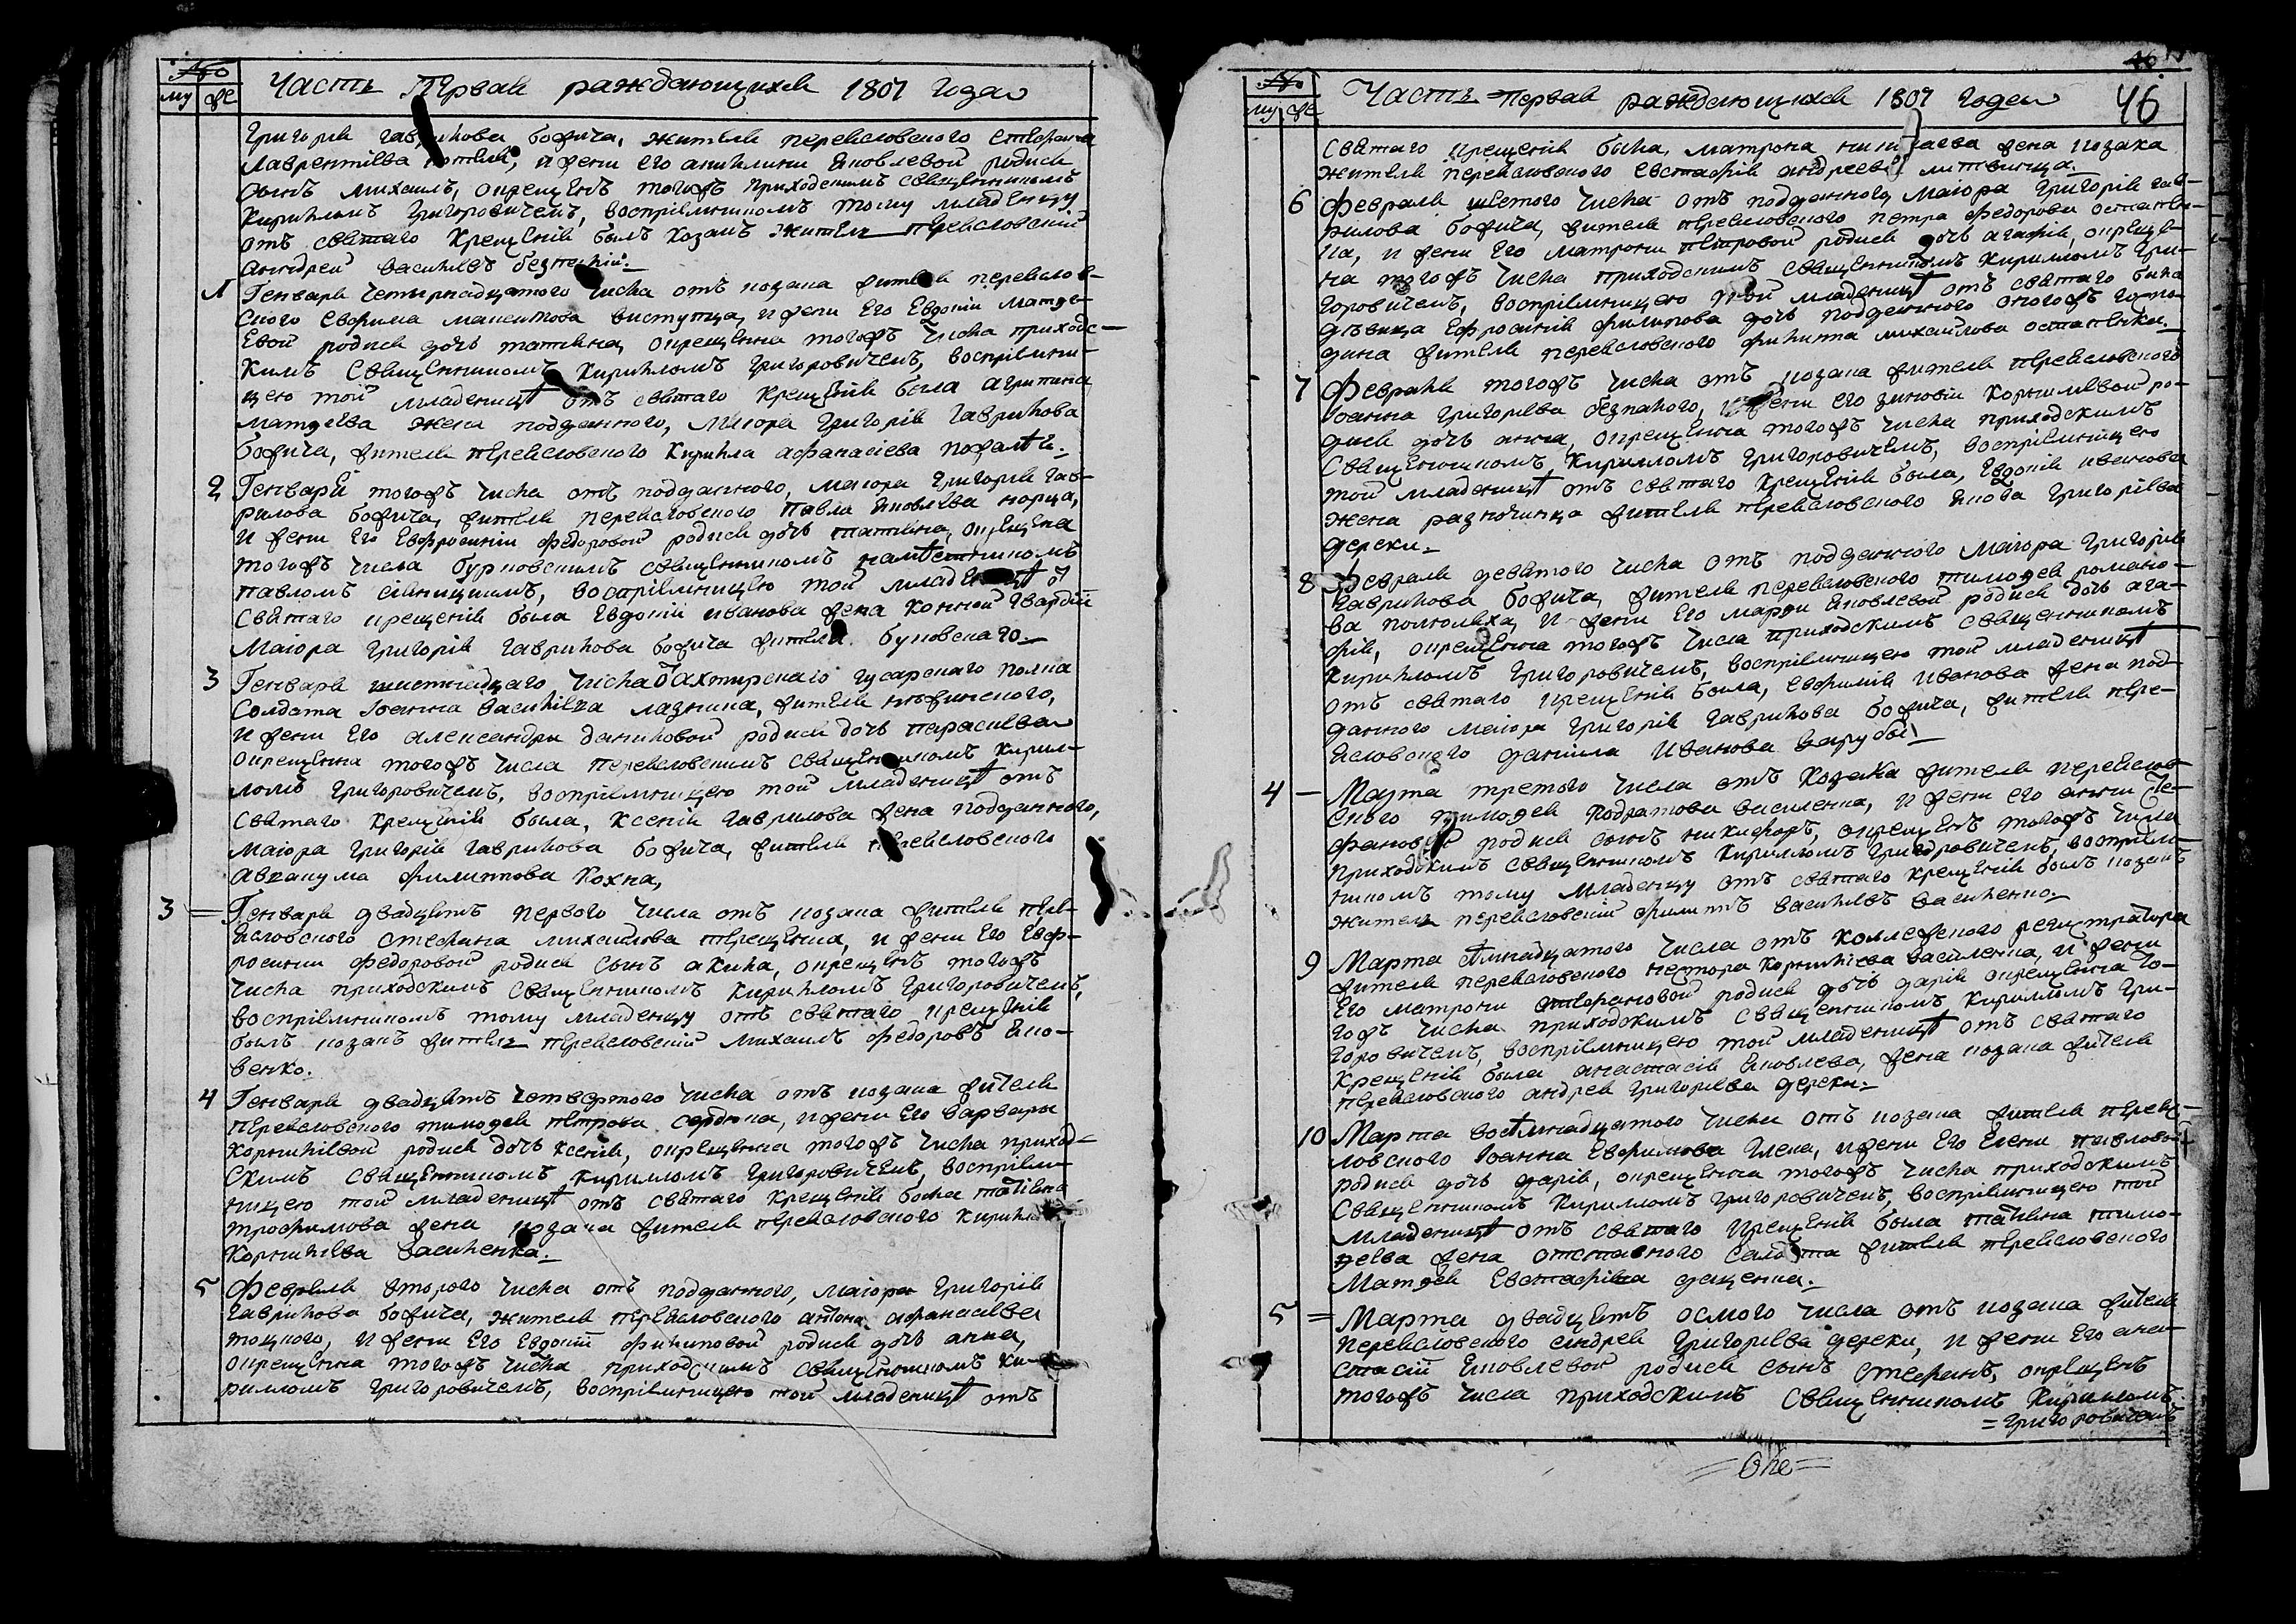 №
му же Часть Первая раждающихся 1807 Года
Григорія Гаврилова божича, жителя перевеловского Стефана
Лаврентиева и жени его анны Яковлевой родися
сынъ михаилъ, окрещенъ тогожъ приходскимъ священникомъ
Кирилломъ Григоровичемъ, восприемникомъ тому младенцу
отъ святаго Крещенія былъ козакъ житель перевеловскій
андрей василіевъ безпалый.
1 Генваря Четырнадцатого Числа отъ козака жителя перевелов-
ского Евфима максимова виступца, и жени Его Евдокіи матфе-
Евой родися дочь татіяна, окрещенна тогожъ Числа приходс-
кимъ Священникомъ Кирилломъ Григоровичемъ, восприемни-
цею той младеницѣ отъ святаго Крещенія была агрипина
матфеева жена подданного, Маіора Григорія Гаврилова
божича, жителя перевеловского Кирила афанасіева
2 Генваря тогожъ Числа отъ подданного, маіора Григорія Гав-
рилова божича, жителя перевеловского Павла Яковлева коржа,
и жени Его Евфросиніи федоровой родися дочь татіяна, окрещена
тогожъ Числа священникомъ намѣстникомъ
павломъ восприемницею той младеницѣ ѿ
святаго крещенія была Евдокія иванова жена Конной Гвардіи
Маіора Григорія Гаврилова божича жителя
3 Генваря шестнадцаго Числа бахтирскаго гусарскаго полка
Солдата Іоанна Василіева лазника, жителя нѣжинского,
и жени Его александры даниловой родися дочь параскева
окрещенна тогожъ Числа перевеловскимъ священникомъ Кирил-
ломъ Григоровичемъ, восприемницею той младеницѣ отъ
святаго Крещенія была, Ксенія Гаврилова жена подданного,
маіора Григорія Гаврилова божича, жителя перевеловского
Аввакума филиппова Кохна,
3 = Генваря двадцять первого Числа отъ козака жителя пере-
веловского стефана михайлова терещенка, и жени Его Евф-
росиніи федоровой родися сынъ акила, окрещенъ тогожъ
Числа приходскимъ священникомъ Кирилломъ Григоровичемъ,
восприемникомъ тому младенцу отъ святаго крещенія
былъ козакъ житель перевеловскій михаилъ федоровъ Яко-
венко.
4 Генваря двадцять Четвертого Числа отъ козака жителя
перевеловского тимофея петрова сердюка, и жени Его варвары
Корниліевой родися дочь ксенія, окрещенна тогожъ Числа приход-
скимъ священникомъ Кирилломъ Григоровичемъ, восприем-
ницею той младеницѣ отъ святаго Крещенія была татіяна
трофимова жена козака жителя перевеловского Кирила
Корниліева василенка.
5 Февраля второго Числа отъ подданного, маіора Григорія
Гаврилова божича, жителя перевеловского антона афанасиева
и жени Его Евдокіи филиповой родися дочь анна,
окрещенна тогожъ Числа приходскимъ священникомъ Ки-
рилломъ Григоровичемъ, восприемницею той младеницѣ отъ
46
№
му же Часть Первая раждающихся 1807 Года 46
святаго крещенія была, матрона жена козака
жителя перевеловского евстафія андреева литвинца.
6 Февраля шестого Числа отъ подданного маіора Григорія гав-
рилова божича, жителя перевеловского петра федорова остапен-
ка, и жени Его матроны петровой родися дочь агафія, окреще-
на тогожъ числа приходскимъ священникомъ Кирилломъ Гри-
горовичемъ, восприемницею той младеницѣ отъ святаго была
дѣвица Ефросинія филипова дочь подданного оногожъ госпо-
дина жителя перевеловского филипа михайлова остапенки.
7 Февраля тогожъ Числа отъ козака жителя перевеловского
Іоанна Григоріева безпалого, и жени его зиновіи Корниліевой ро-
дися дочь анна, окрещенна тогожъ Числа приходскимъ
священникомъ Кирилломъ Григоровичемъ, восприемницею
той младеницѣ отъ святаго Крещенія была, Евдокія иванова
жена разночинца жителя перевеловского Якова Григоріева
дереки.
8 Февраля девятого Числа отъ подданного маіора Григорія
Гаврилова божича, жителя перевеловского тимофея романо-
ва и жени Его марфы Яковлевой родися дочь ага-
фія, окрещенна тогожъ Числа приходскимъ священникомъ
Кирилломъ Григоровичемъ, восприемницею той младеницѣ
отъ святаго крещенія была, евфимія Иванова жена под-
данного маіора Григорія Гаврилова божича, жителя пере-
веловского даніила Иванова Зарубы.
4 — Марта третого Числа отъ Козака жителя перевелов-
ского тимофея Кодратова василенка, и жени его анны Сте-
фановой родися сынъ никифоръ, окрещенъ тогожъ Числа
приходскимъ священникомъ Кирилломъ Григоровичемъ, восприем-
никомъ тому младенцу отъ святаго крещенія былъ козакъ
житель перевеловскій филиппъ василіевъ василенко.
9 Марта Числа отъ коллежского регистратора
жителя перевеловского нестора Корниліева василенка, и жени
Его матроны стефановой родися дочь дарія окрещенна то-
гожъ Числа приходскимъ священникомъ Кирилломъ Гри-
горовичемъ, восприемницею той младеницѣ отъ святаго
Крещенія была анастасія Яковлева, жена козака жителя
перевеловского андрея Григоріева дереки.
10 Марта восѣмнадцатого Числа отъ козака жителя переве-
ловского Іоанна Евфимова и жени Его Елени павловой
родися дочь дарія, окрещенна тогожъ Числа приходскимъ
священникомъ Кирилломъ Григоровичемъ, восприемницею той
младеницѣ отъ святаго крещенія была татіяна тимо-
феева жена отставного Салдата жителя перевеловского
Матфея Евстафіева даценка.
5 = Марта двадцять осмого Числа отъ козака жителя
перевеловского андрея Григоріева дереки, и жени Его ана-
стасіи Яковлевой родися сынъ стефанъ, окрещенъ
тогожъ Числа приходскимъ священникомъ Кирилломъ
=Григоровичемъ